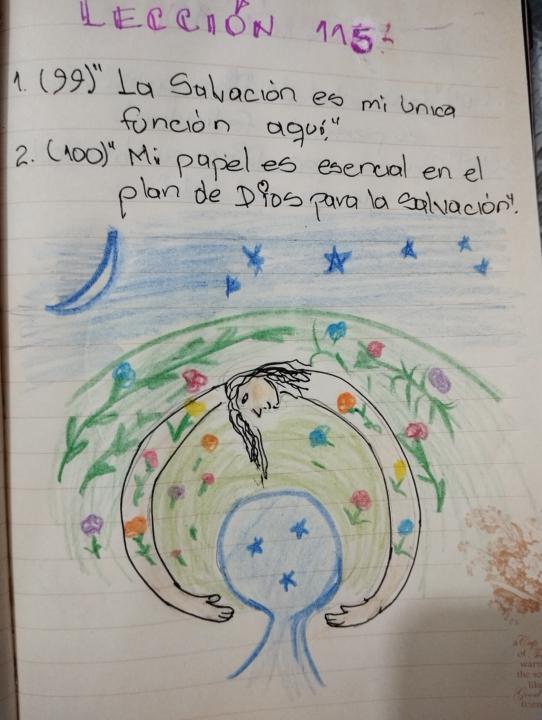 LECCIÓN 115:
1. (99)" La Salvación es mi única
función aquí."
2. (100)" Mi papel es esencial en el
plan de Dios para la salvación".